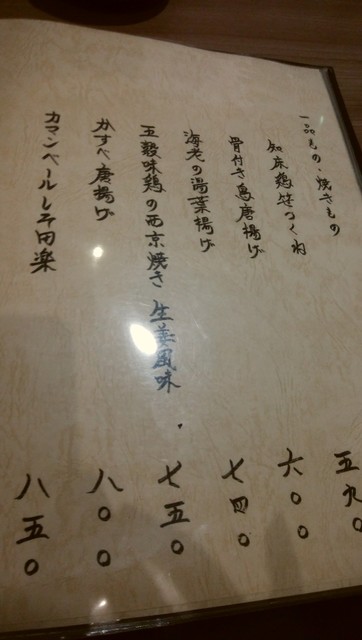 一品もの・焼きもの
知床鶏笹つくね
骨付き鳥唐揚げ
海老の湯葉揚げ
五穀味鶏の西京焼き 生姜風味
かすべ唐揚げ
カマンベールしそ田楽
五九〇
六〇〇
七四〇
七五〇
八〇〇
八五〇